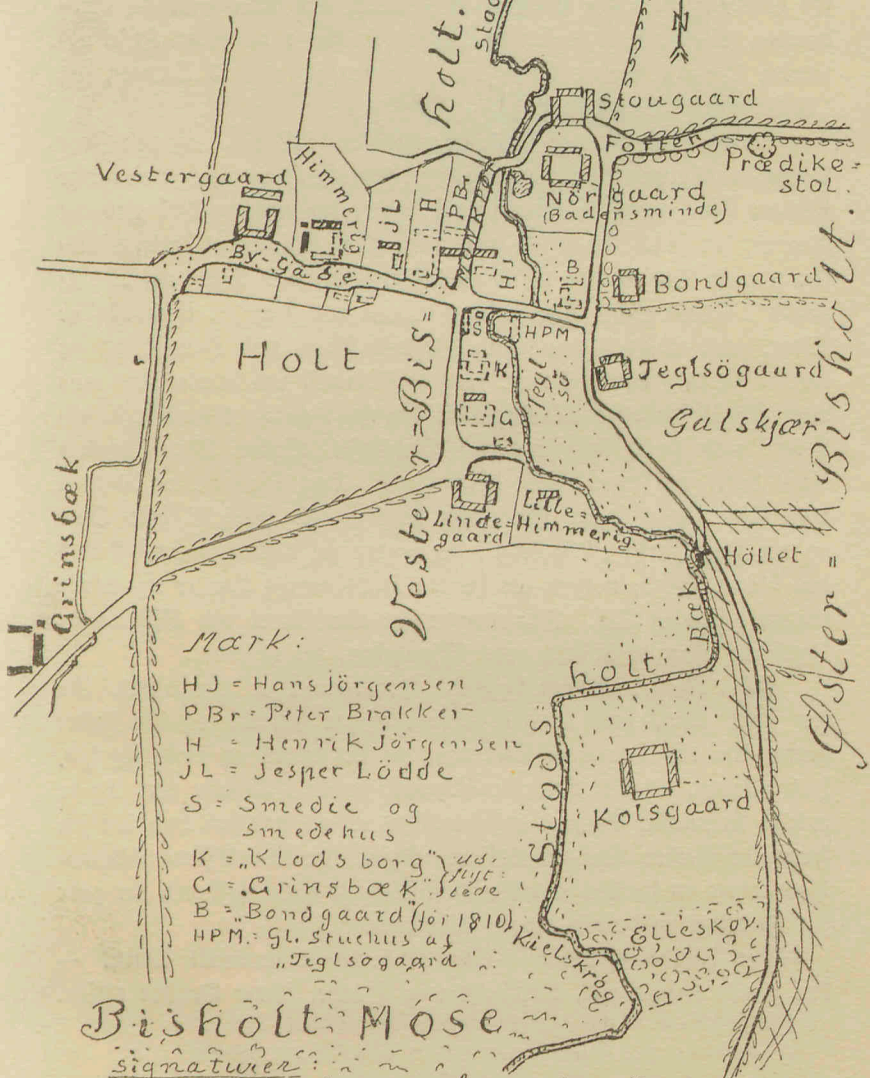 N
holt.
Stougaard
Forten
Prædike=
stol.
Vestergaard
Himmerig
JL
H
PBr
Nörgaard
(Badensminde)
HJ
B
By-Gade
Bondgaard
Holt
S
HPM
K
G
Tegl
sö
Teglsögaard
Galskjær
Vester=Bis=
Øster=Bisholt.
Grinsbæk
Linde=
gaard
Lille=
Himmerig.
Höllet
Bæk
holt
Stods
Kolsgaard
Mark:
HJ = Hans Jörgensen
PBr = Peter Brakker
H = Henrik Jörgensen
JL = Jesper Lödde
S = Smedie og
Smedehus
K = „Klodsborg" } ud-
G = „Grinsbæk" } flyt-
tede
B = „Bondgaard" (för 1810)
HPM. = Gl. Stuehus af
„Teglsögaard"
Kielskrog
Elleskov.
Bisholt Mose
Signaturer: